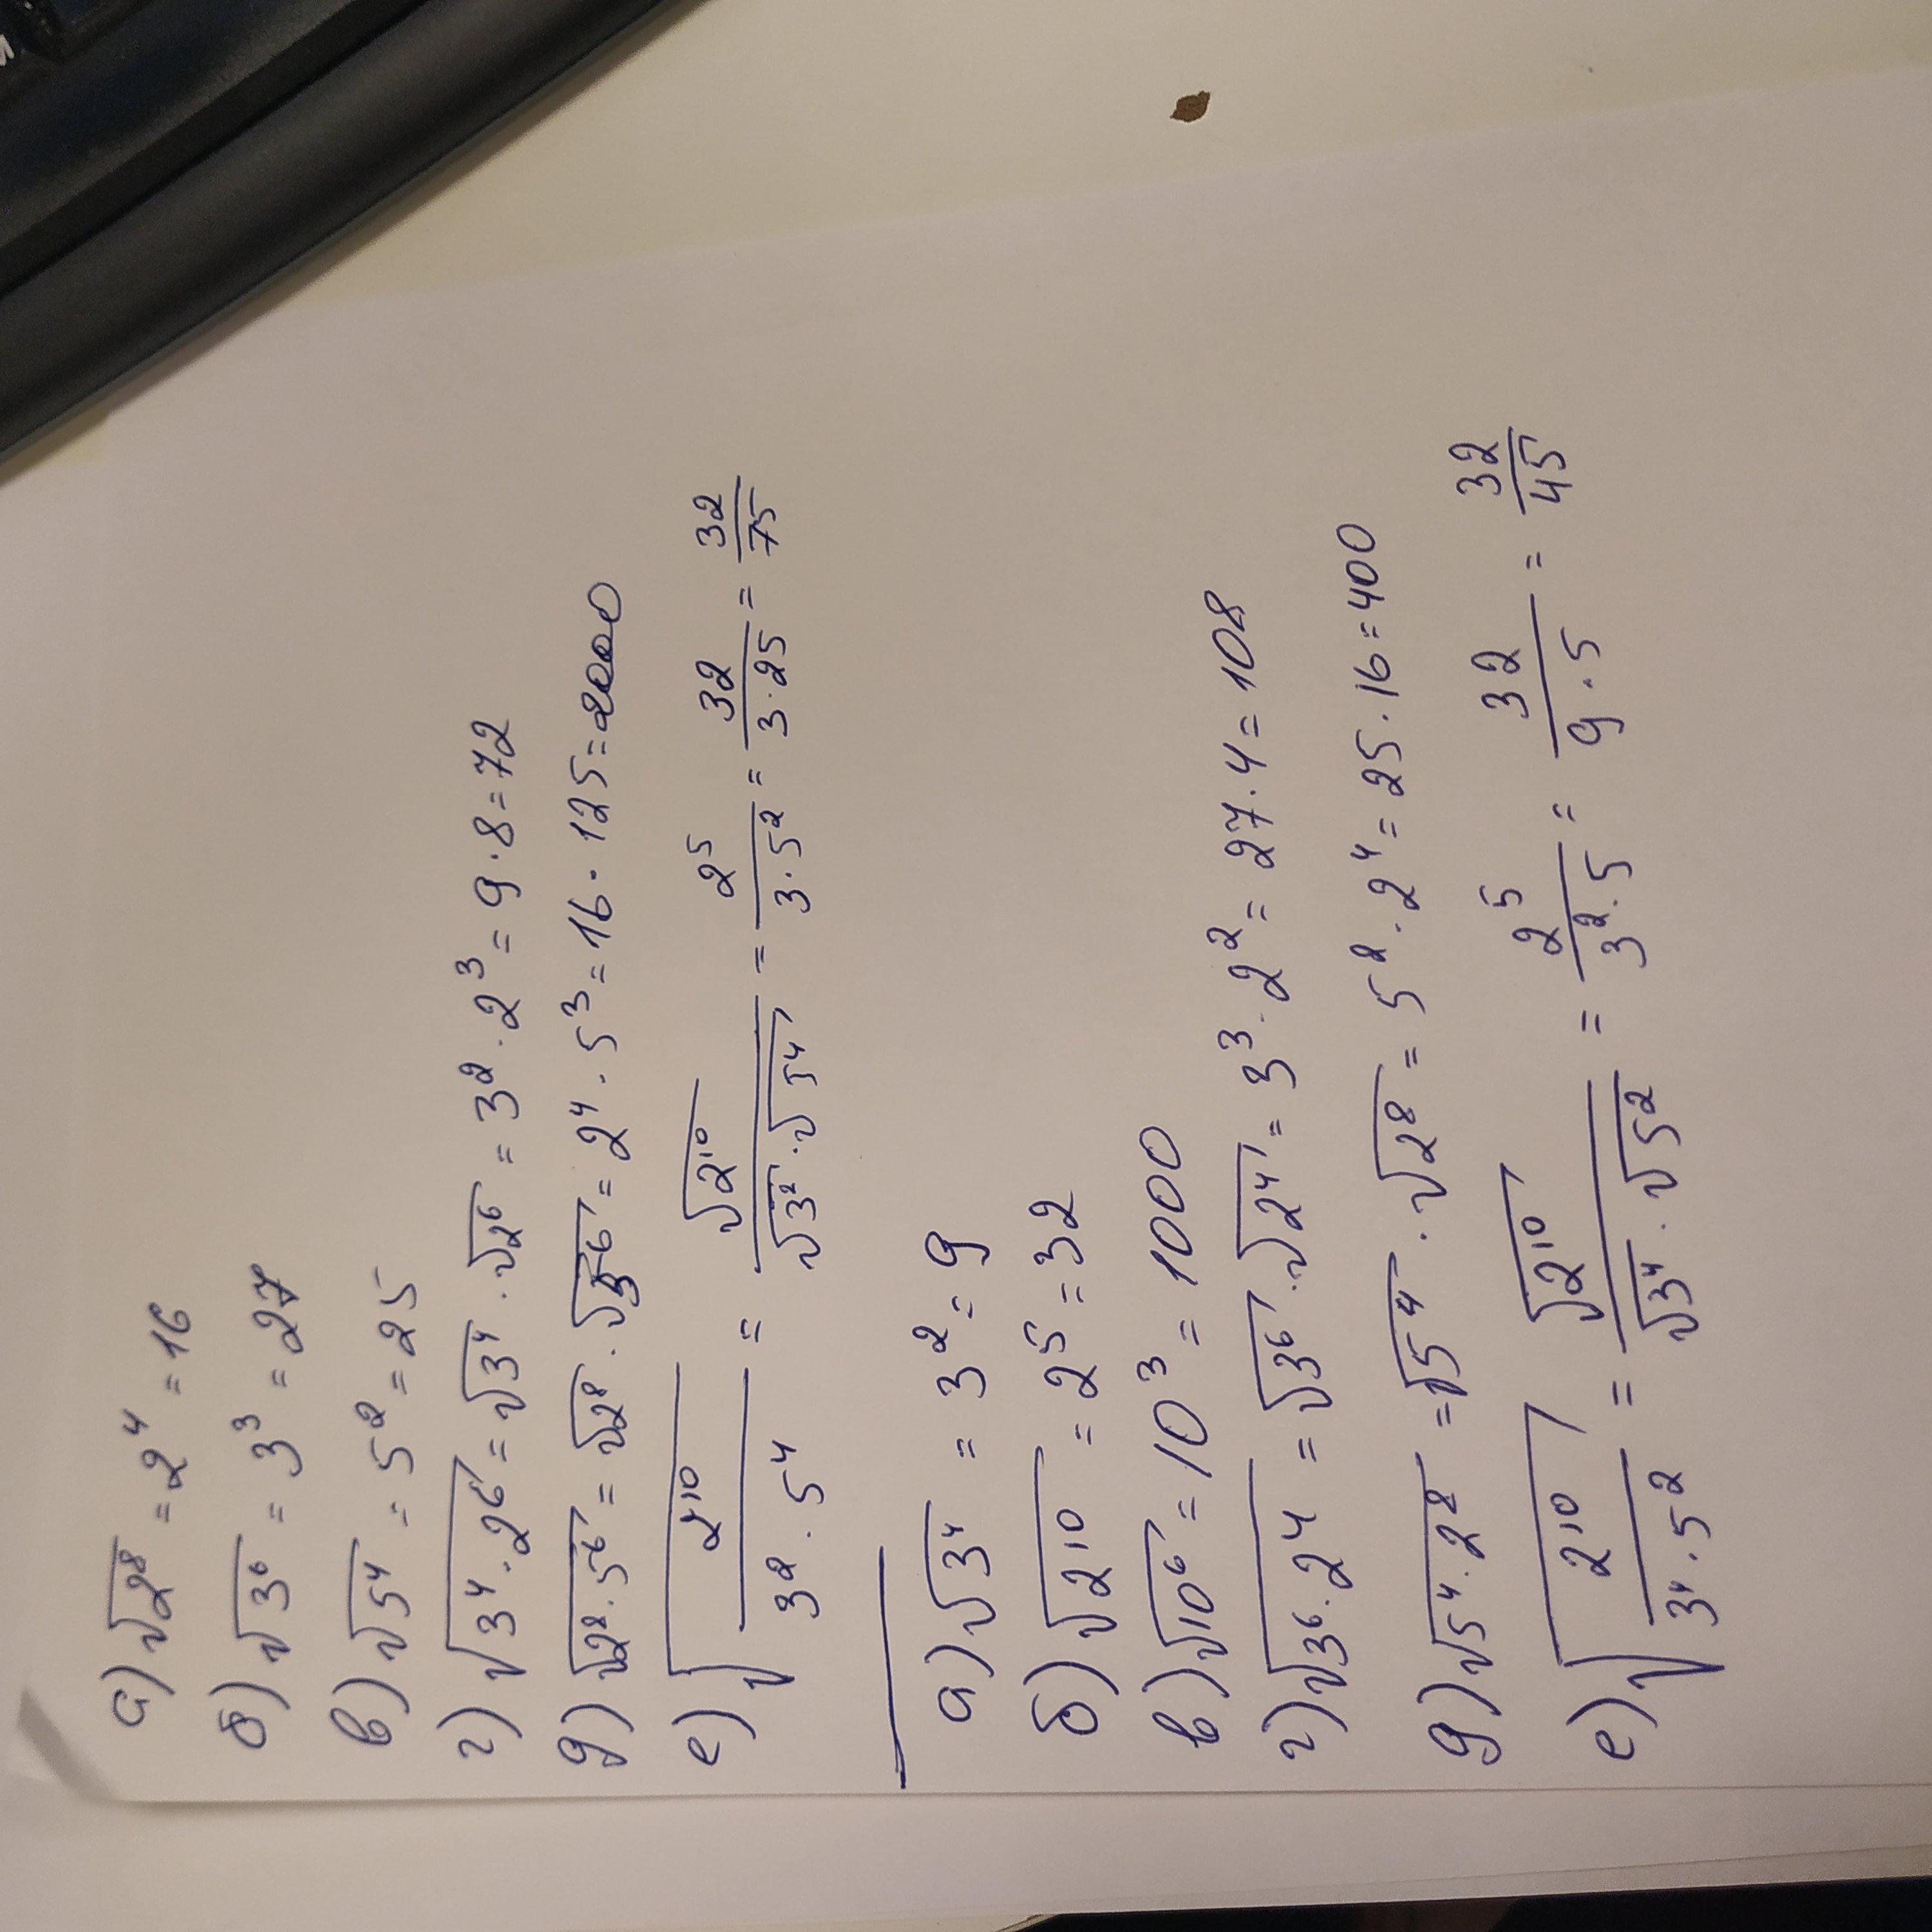 а) √2⁸ = 2⁴ = 16
б) √3⁶ = 3³ = 27
в) √5⁴ = 5² = 25
г) √(3⁴·2⁶) = √3⁴ · √2⁶ = 3² · 2³ = 9 · 8 = 72
д) √(2⁸·5⁶) = √2⁸ · √5⁶ = 2⁴ · 5³ = 16 · 125 = 2000
е) √(2¹⁰/(3²·5⁴)) = √2¹⁰/(√3²·√5⁴) = 2⁵/(3·5²) = 32/(3·25) = 32/75
а) √3⁴ = 3² = 9
б) √2¹⁰ = 2⁵ = 32
в) √10⁶ = 10³ = 1000
г) √(3⁶·2⁴) = √3⁶ · √2⁴ = 3³ · 2² = 27 · 4 = 108
д) √(5⁴·2⁸) = √5⁴ · √2⁸ = 5² · 2⁴ = 25 · 16 = 400
е) √(2¹⁰/(3⁴·5²)) = √2¹⁰/(√3⁴·√5²) = 2⁵/(3²·5) = 32/(9·5) = 32/45